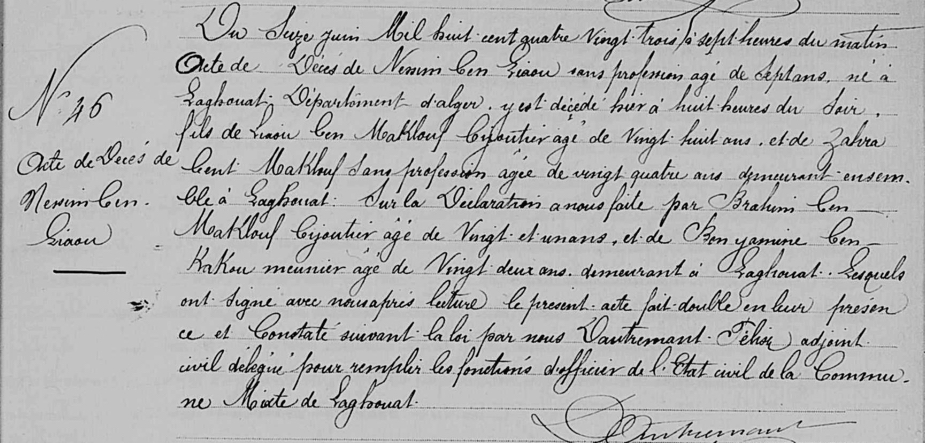 Du Seize juin Mil huit cent quatre Vingt trois à sept heures du matin
Acte de Décès de Nessim Ben Liaou sans profession agé de Septans, né à
Laghouat Département d'alger, y est décédé hier à huit heures du Soir,
fils de Liaou Ben Maklouf Bijoutier âgé de Vingt huit ans, et de Zahra
Bent Maklouf Sans profession âgée de vingt quatre ans demeurant ensem-
ble à Laghouat. Sur la Déclaration a nous faite par Brahim Ben
Maklouf Bijoutier âgé de Vingt et unans, et de Ben yamine Ben
Kakou meunier âgé de Vingt deux ans demeurant à Laghouat. Lesquels
ont Signé avec nous après lecture le present acte fait double en leur présen
ce et Constaté suivant la loi par nous Dautremant Félix adjoint
civil délégué pour remplir les fonctions d'officier de l'Etat civil de la Commu-
ne Mixte de Laghouat
Dautremant
N° 46
Acte de Décés de
Nessim Ben
Liaou